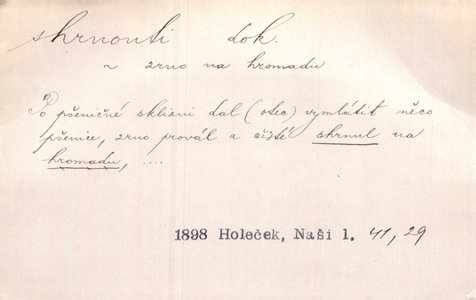 shrnouti dok.
~ zrno na hromadu
Po pšeničné sklizni dal (otec) vymlátit něco
pšenice, zrno provál a čisté shrnul na
hromadu, ....
1898 Holeček, Naši 1. 41, 29